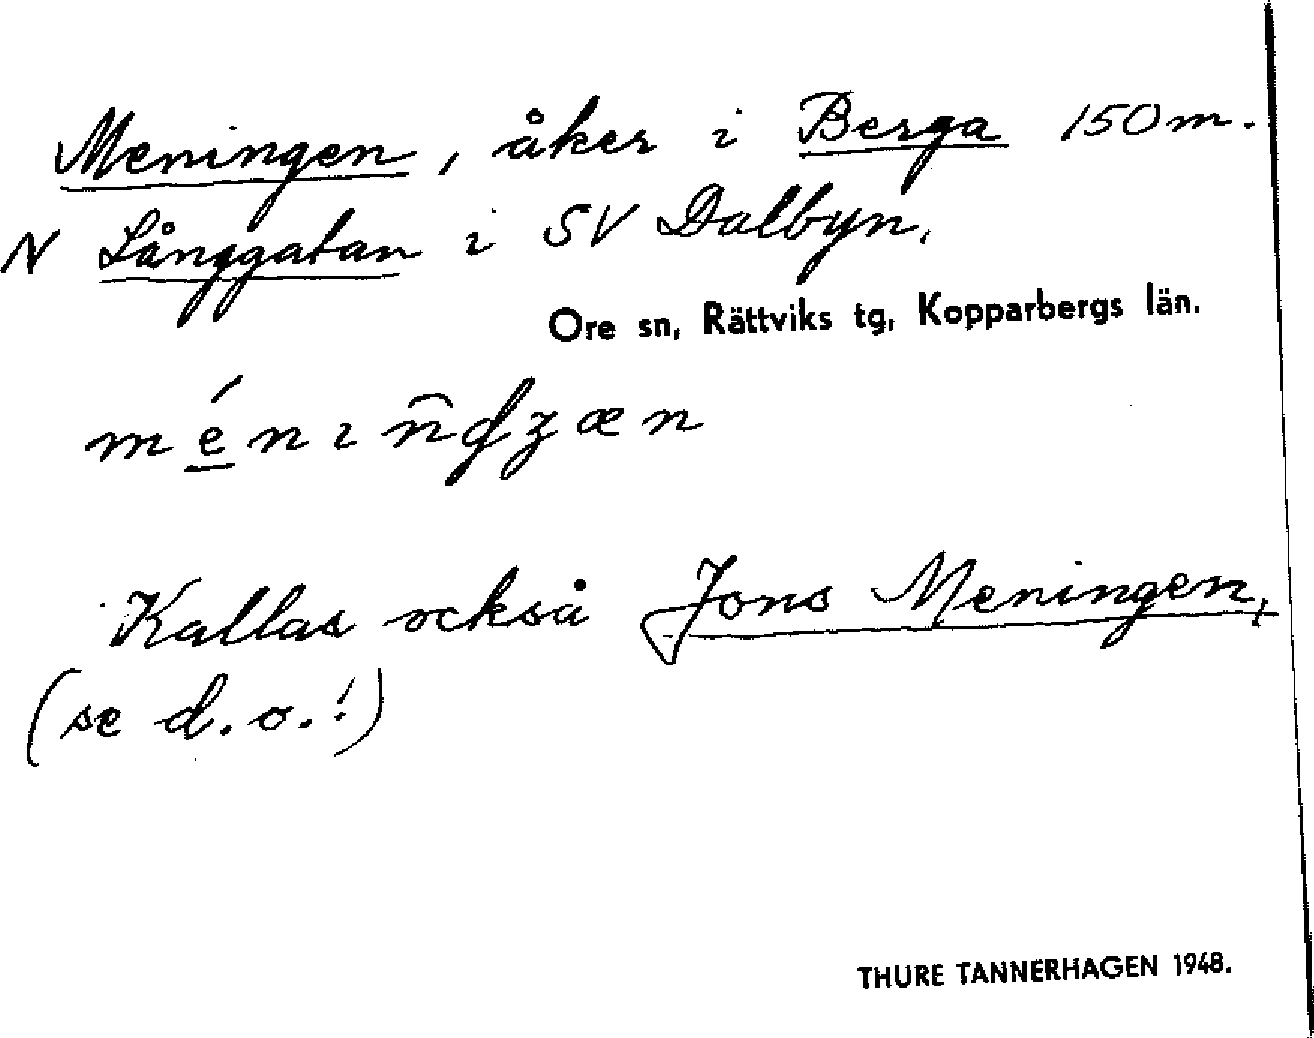 Meningen, åker i Berga 150 m.
N Långgatan i SV Dalbyn.
Ore sn, Rättviks tg, Kopparbergs län.
Kallas också Jons Meningen,
(se d.o.!)
THURE TANNERHAGEN 1948.